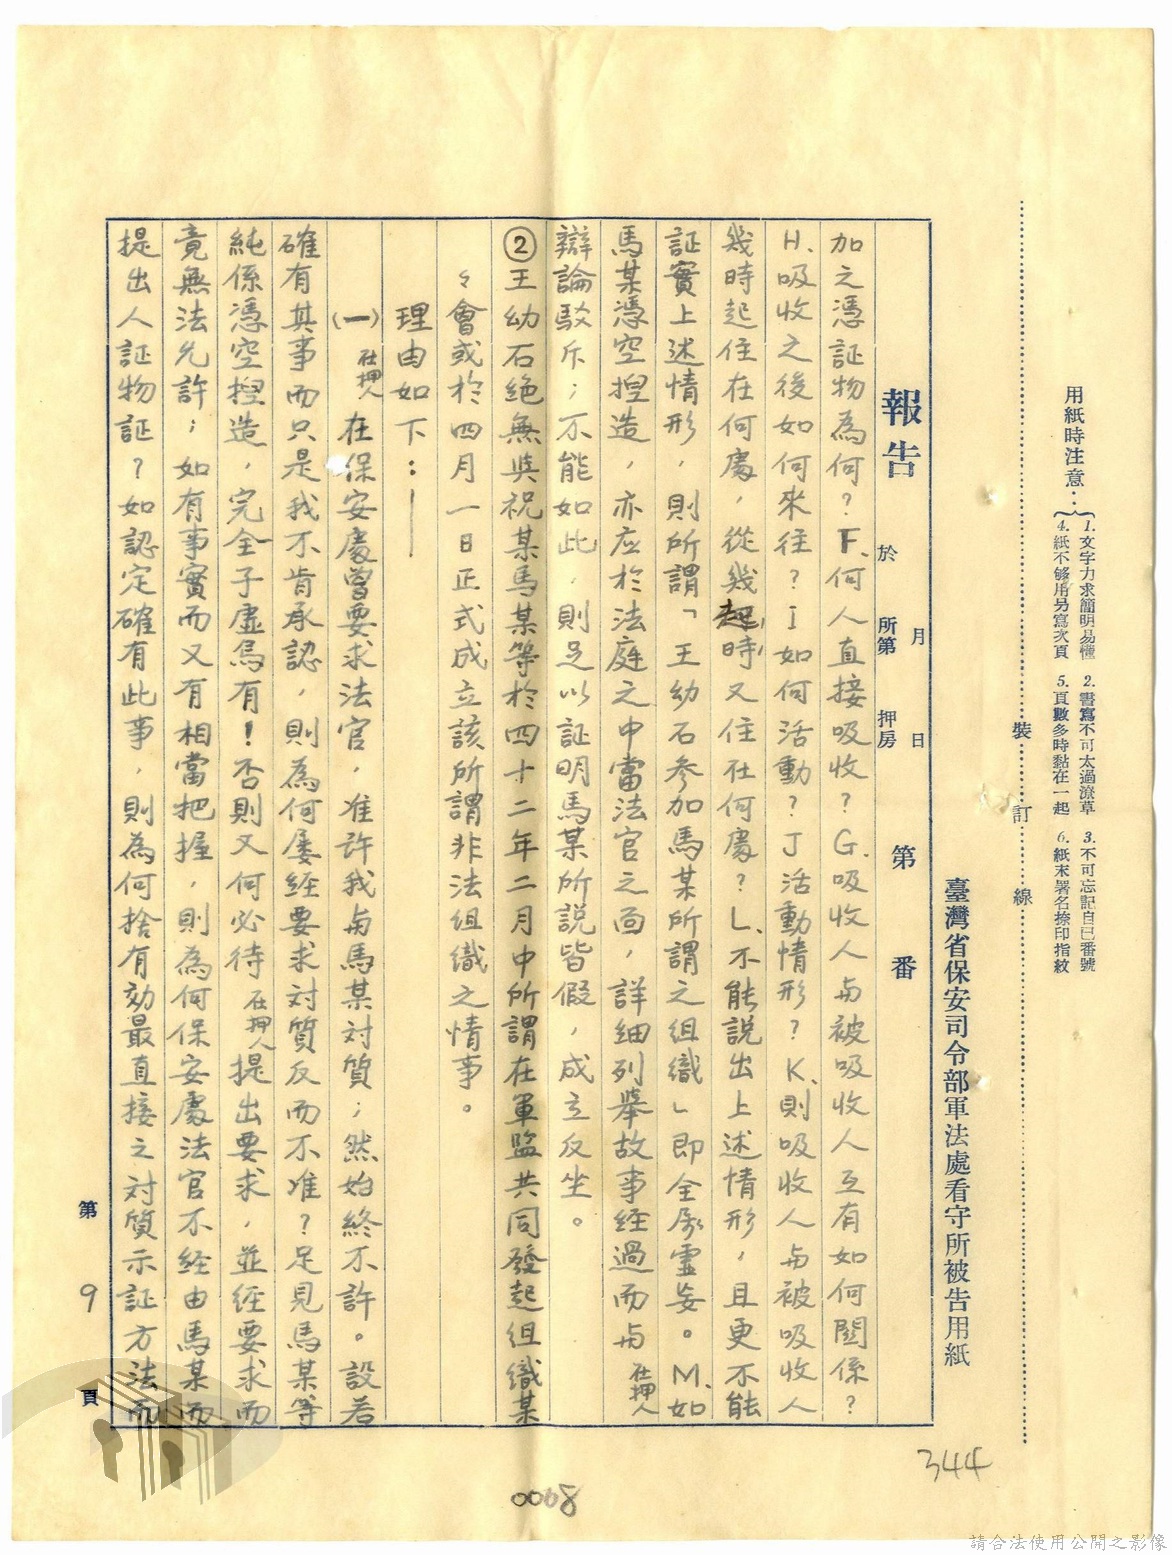 用紙時注意：
1.文字力求簡明易懂 2.書寫不可太過潦草 3.不可忘記自已番號
4.紙不够用另寫次頁 5.頁數多時黏在一起 6.紙末署名捺印指紋
裝訂線
臺灣省保安司令部軍法處看守所被告用紙
報告 於 月 日 所第 押房 第 番
加之憑証物為何？F.何人直接吸收？G.吸收人与被吸收人互有如何關係？
H.吸收之後如何來往？I如何活動？J活動情形？K.則吸收人与被吸收人
幾時起住在何處，從幾起時又住在何處？L、不能說出上述情形，且更不能
証實上述情形，則所謂「王幼石參加馬某所謂之組織」即全屬虛妄。M.如
馬某憑空揑造，亦应於法庭之中當法官之面，詳細列舉故事經過而与在押人
辯論駁斥；不能如此，則足以証明馬某所説皆假，成立反坐。
②王幼石絕無与祝某馬某等於四十二年二月中所謂在軍監共同發起组織某
々會或於四月一日正式成立該所謂非法组織之情事。
理由如下：——
(一)在押人在保安處曾要求法官，准許我与馬某对質；然始終不許。設若
確有其事而只是我不肯承認，則為何屡經要求对質反而不准？足見馬某等
純係憑空揑造，完全子虛烏有！否則又何必待在押人提出要求，並經要求而
竟無法允許；如有事實而又有相當把握，則為何保安處法官不經由馬某而
提出人証物証？如認定確有此事，則為何捨有効最直接之对質示証方法而
第 9 頁
344
0068
請合法使用公開之影像